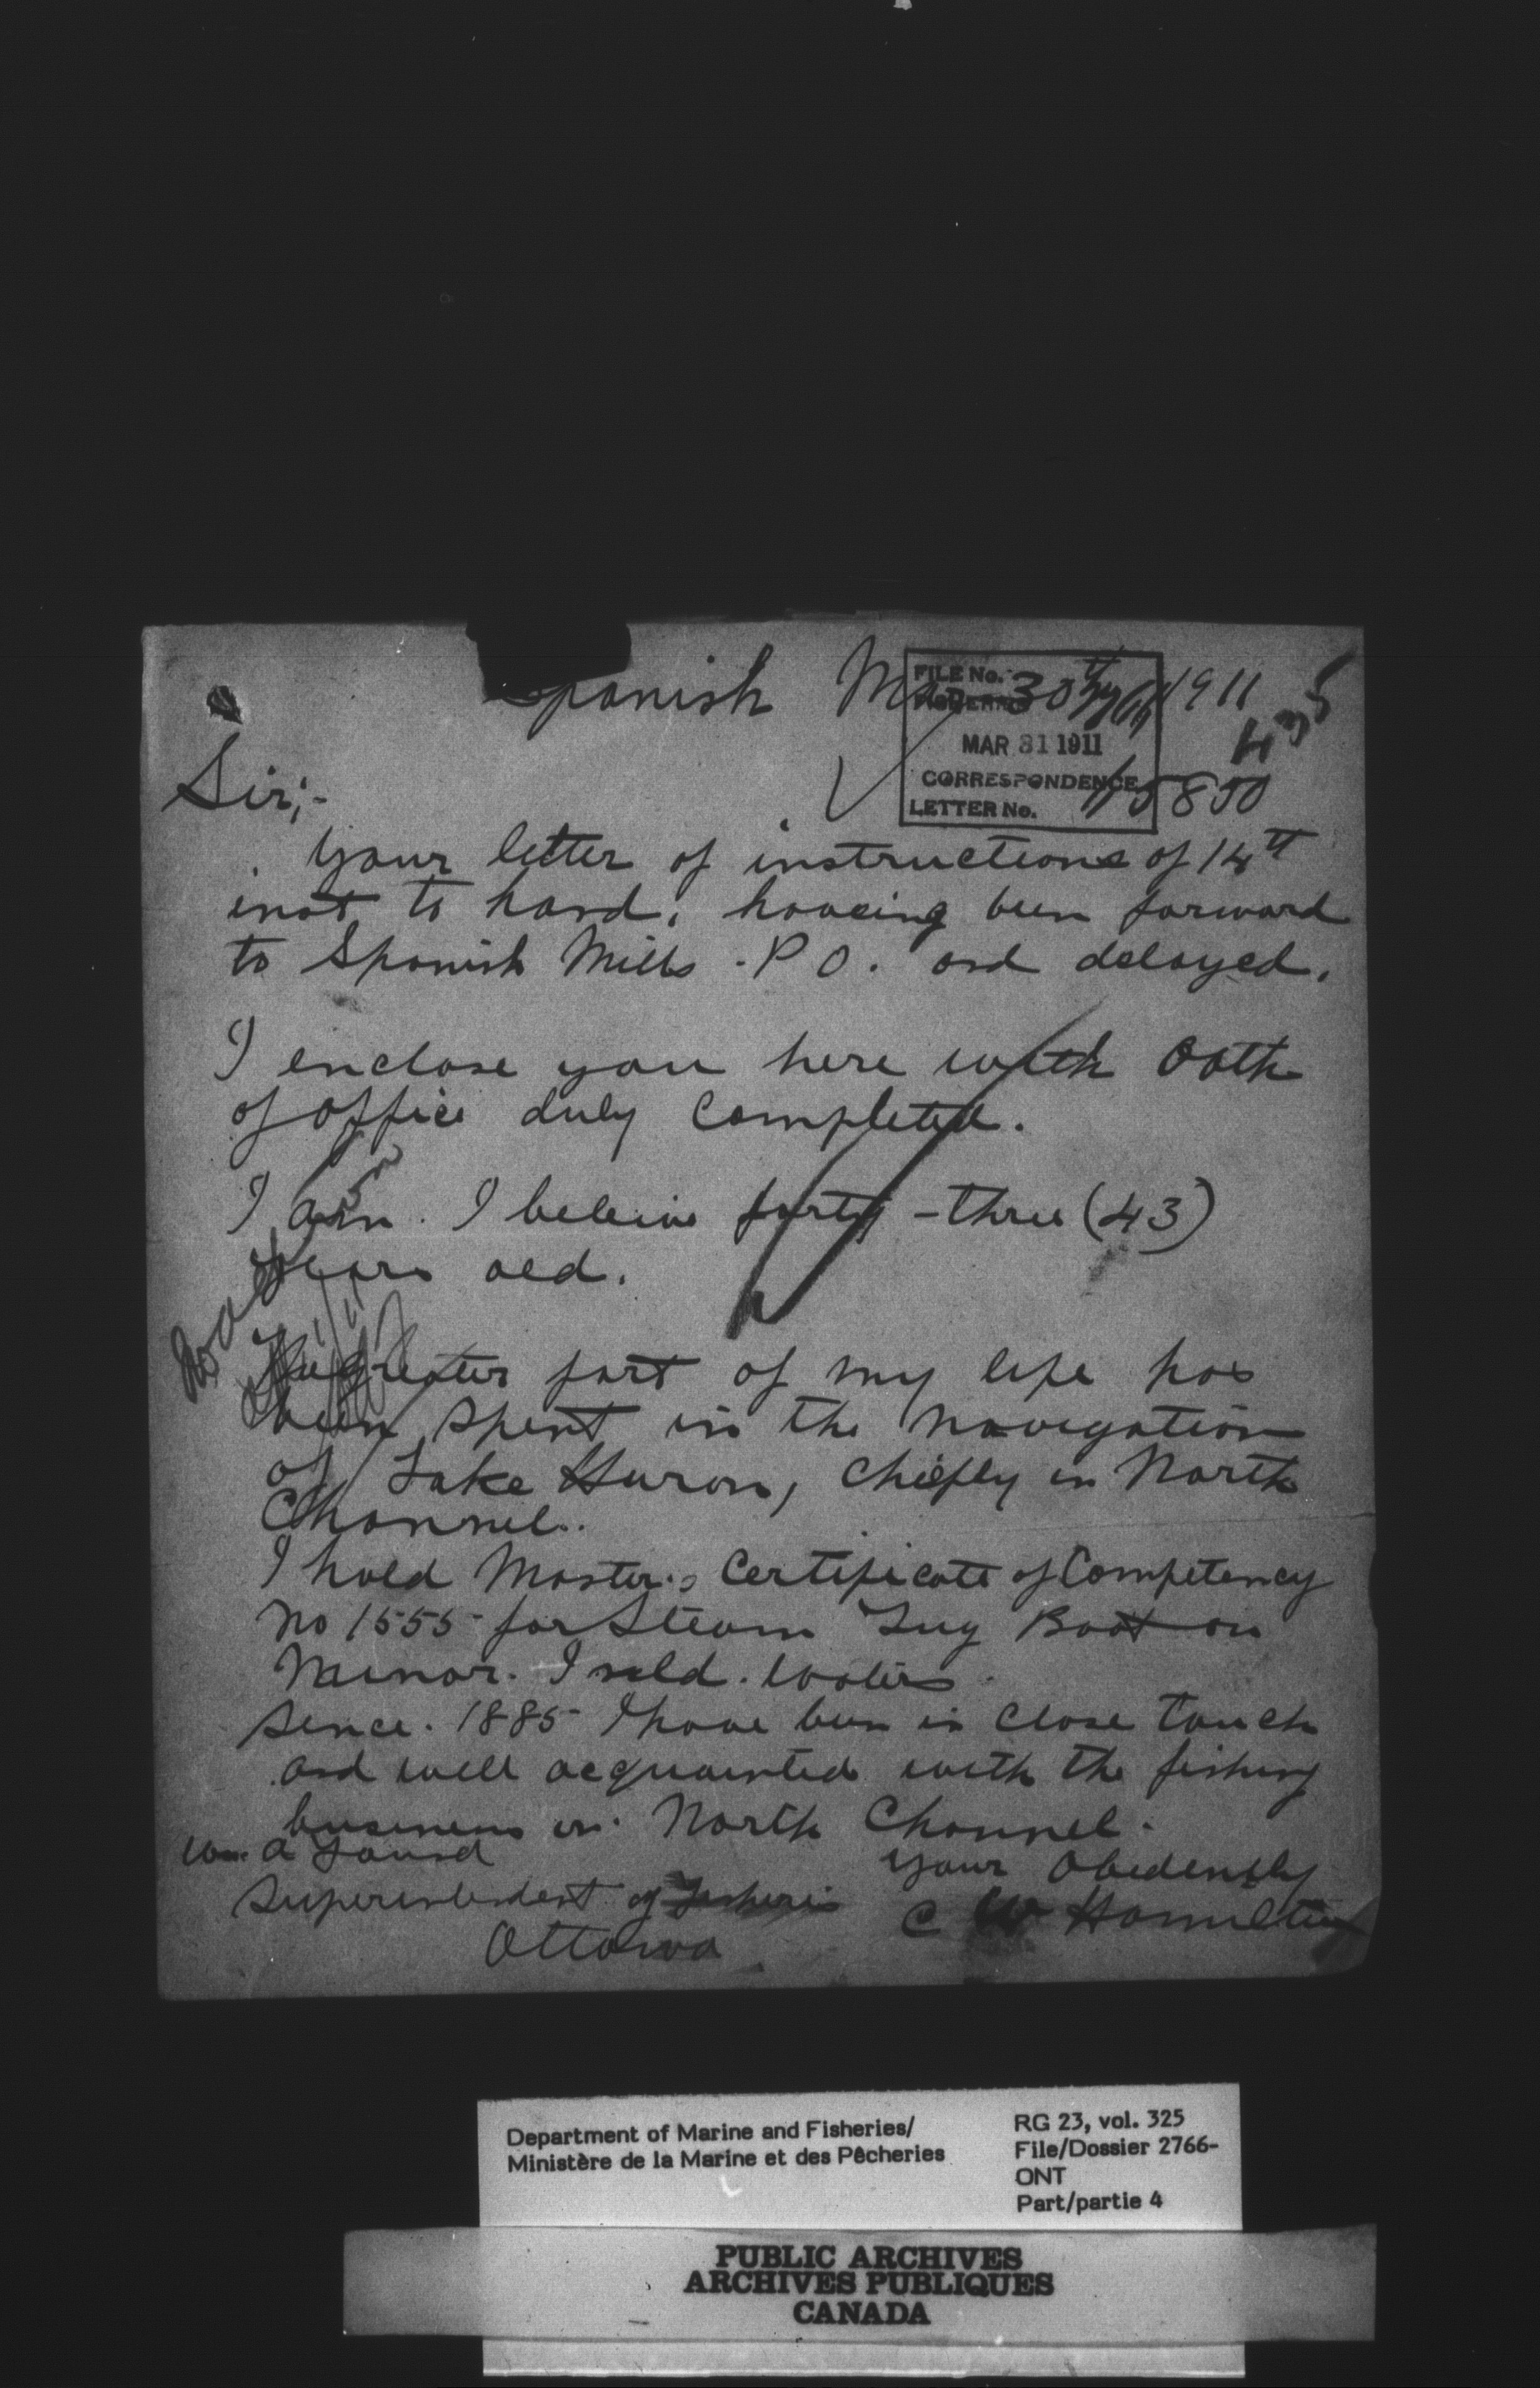 Spanish Mar 30th 1911
FILE No.
FISHERIES
MAR 31 1911
CORRESPONDENCE
LETTER No. 45850
435
Sir;-
Your letter of instructions of 14th
inst to hand, haveing been forward
to Spanish Mills . P O . and delayed.
I enclose you here with Oath
of office duly Completed.
I am . I beleive forty - three (43)
years old.
The greater part of my life has
been spent in the navigation
of Lake Huron, Chiefly in North
Channel.
I hold Master's Certificate of Competency
No 1555 for Steam Tug Boat on
Minor . Inld . Waters
Since . 1885 I have been in Close Touch
and well acquainted with the fishing
business in North Channel.
Your Obediently
C W Hamilton
Wm. A Found
Superintendent of Fisheries
Ottawa
Department of Marine and Fisheries/
Ministère de la Marine et des Pêcheries
RG 23, vol. 325
File/Dossier 2766-
ONT
Part/partie 4
PUBLIC ARCHIVES
ARCHIVES PUBLIQUES
CANADA